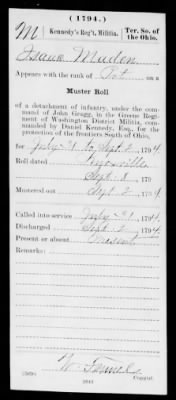 (1794.)
M Kennedy's Reg't, Militia. Ter. So. of the Ohio.
Isaac
Appears with the rank of Pvt on a
Muster Roll
of a detachment of infantry, under the command
of John Gragg, in the Greene Regiment
of Washington District Militia, commanded
by Daniel Kennedy, Esq., for the
protection of the frontiers South of Ohio,
for July 21 to Sept. 2, 1794
Roll dated
Sept. 8, 179
Mustered out Sept 2, 1794.
Called into service July 21, 1794.
Discharged Sept. 2, 1794
Present or absent Present
Remarks:
Copyist.